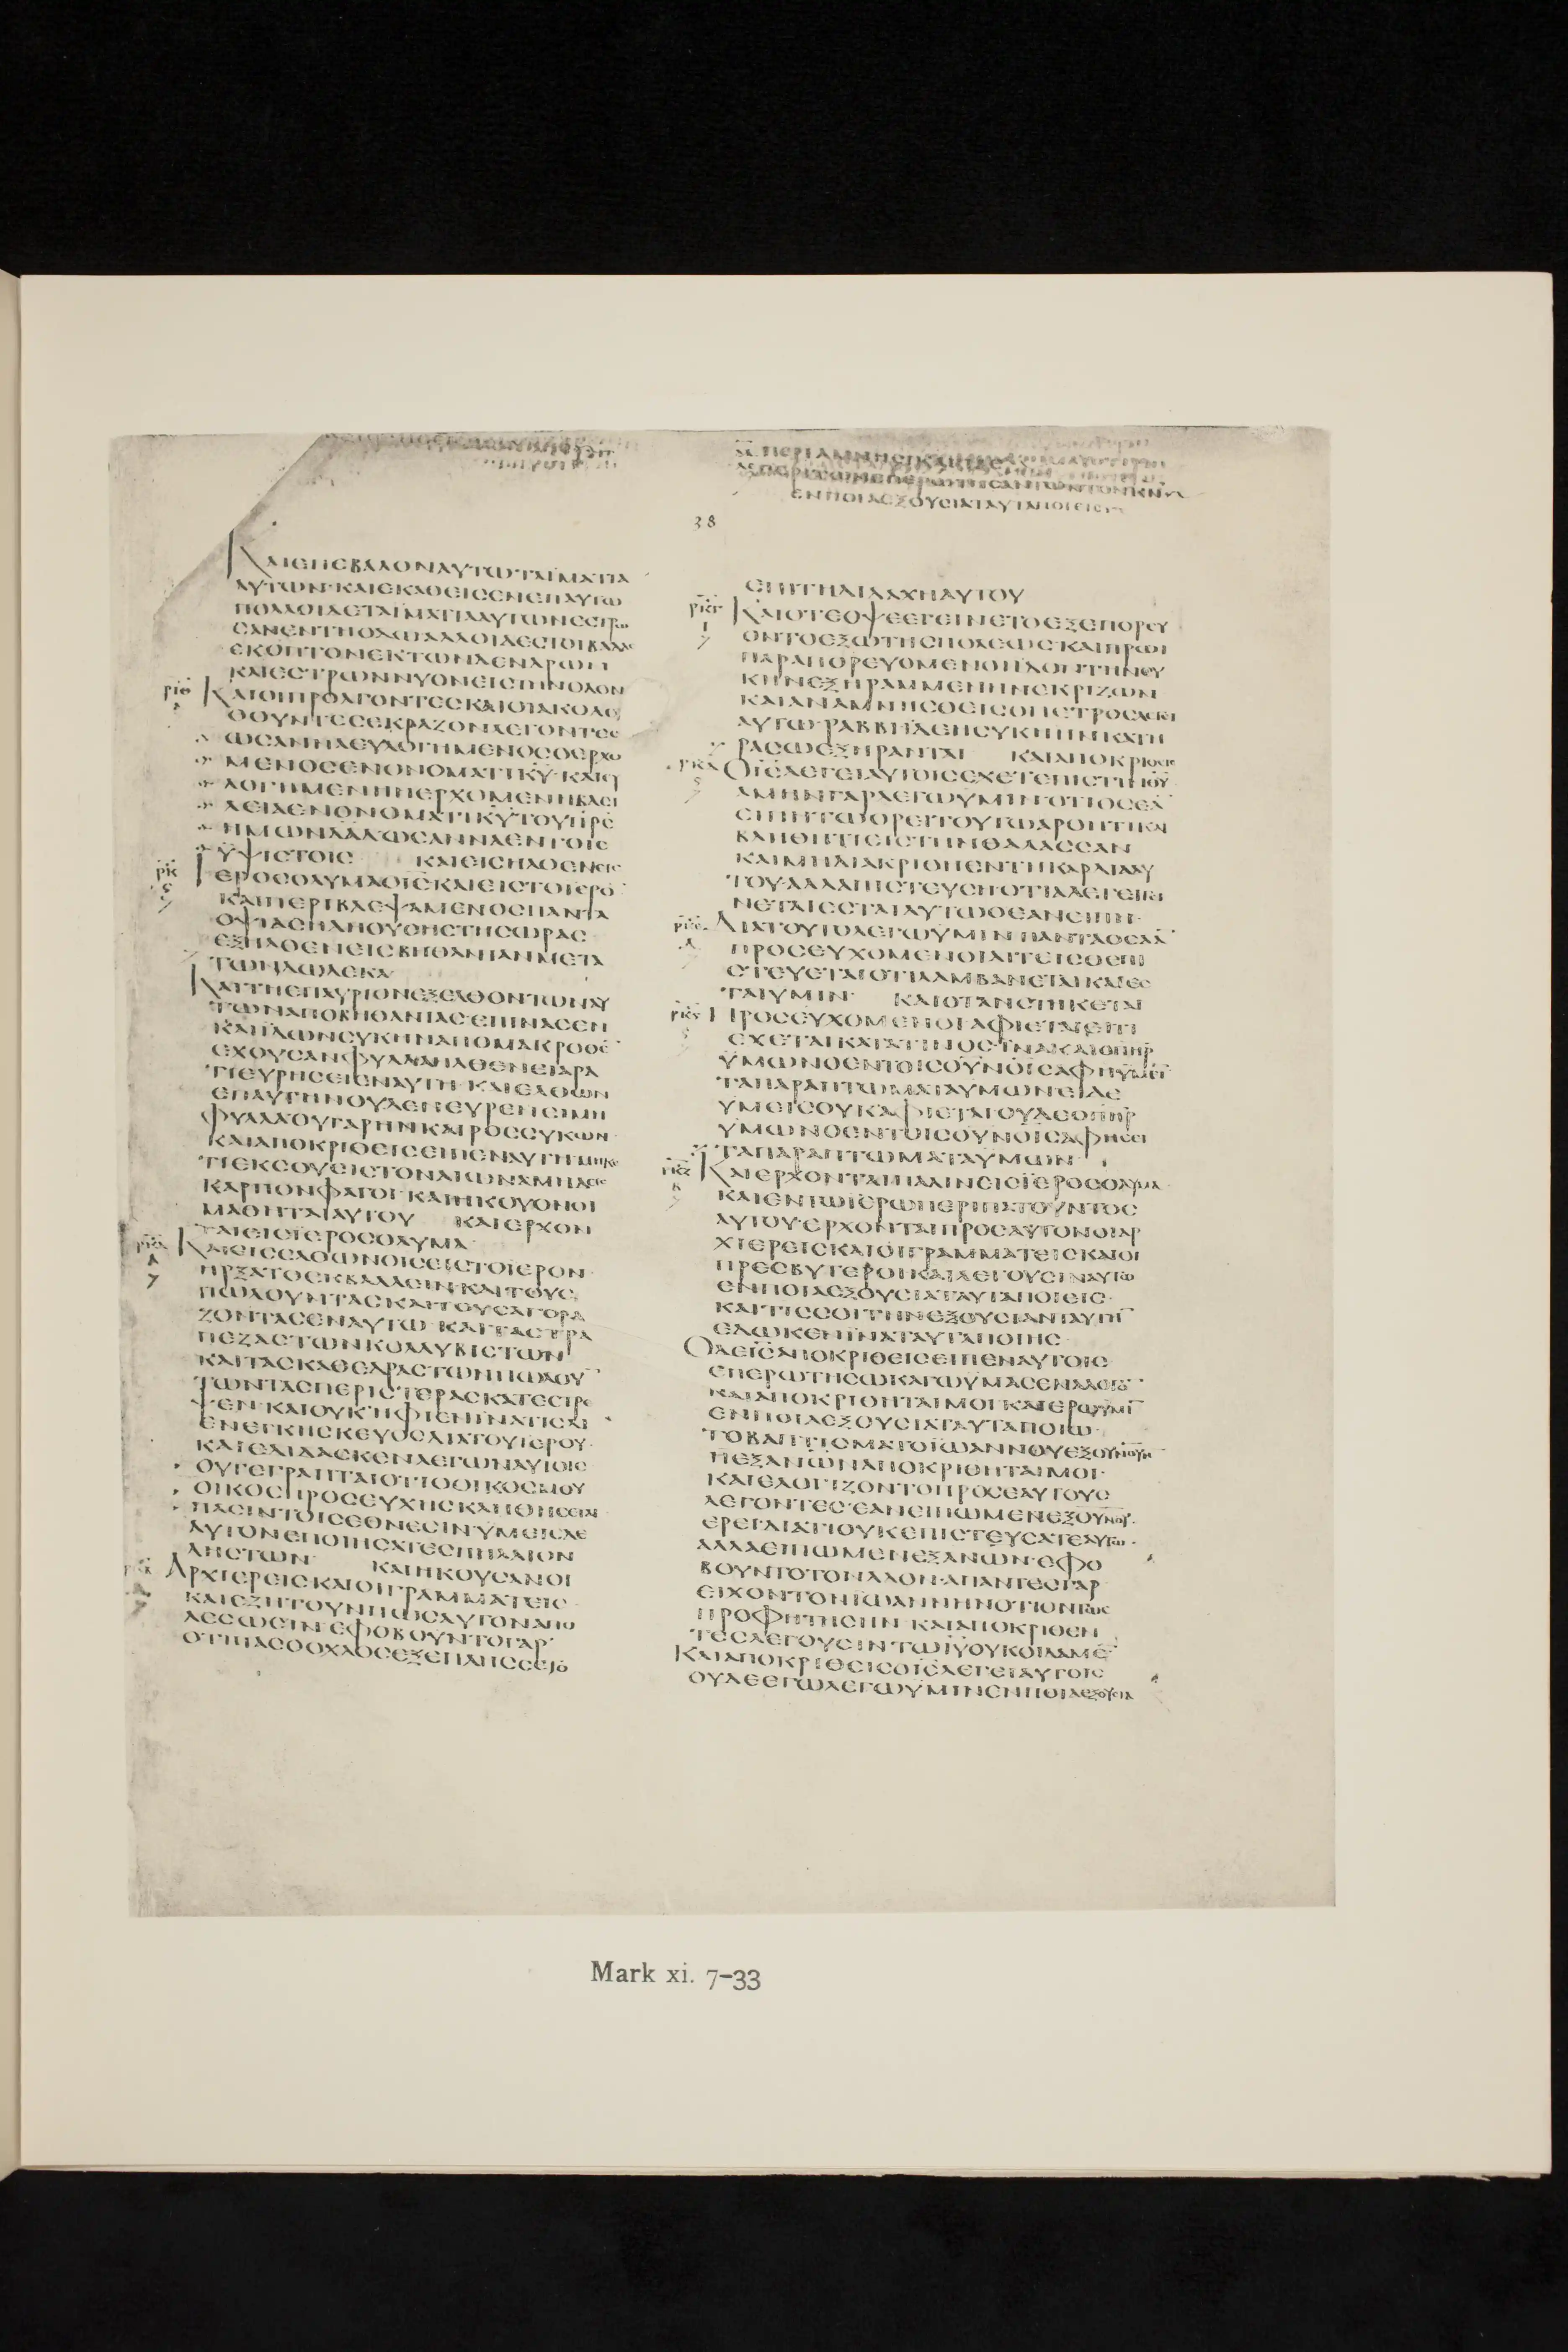 38
ΚΑΙΕΠΕΒΑΛΟΝΑΥΤΩΤΑΪΜΑΤΙΑ
ΑΥΤΩΝ·ΚΑΙΕΚΑΘΕΙΣΕΝΕΠΑΥΤΩ
ΠΟΛΛΟΙΔΕΤΑΪΜΑΤΙΑΑΥΤΩΝΕΣΤΡΩ
ΣΑΝΕΝΤΗΟΔΩΑΛΛΟΙΔΕΣΤΟΙΒΑΔΑΣ
ΕΚΟΠΤΟΝΕΚΤΩΝΔΕΝΔΡΩΝ
ΚΑΙΕΣΤΡΩΝΝΥΟΝΕΙΣΤΗΝΟΔΟΝ
ΚΑΙΟΙΠΡΟΑΓΟΝΤΕΣΚΑΙΟΙΑΚΟΛΟΥ
ΘΟΥΝΤΕΣΕΚΡΑΖΟΝΛΕΓΟΝΤΕΣ
ΩΣΑΝΝΑΕΥΛΟΓΗΜΕΝΟΣΟΕΡΧΟ
ΜΕΝΟΣΕΝΟΝΟΜΑΤΙΚΥ·ΚΑΙΕΥ
ΛΟΓΗΜΕΝΗΗΕΡΧΟΜΕΝΗΒΑΣΙ
ΛΕΙΑΕΝΟΝΟΜΑΤΙΚΥΤΟΥΠΡΣ
ΗΜΩΝΔΑΔΩΣΑΝΝΑΕΝΤΟΙΣ
ΥΨΙΣΤΟΙΣ ΚΑΙΕΙΣΗΛΘΕΝΕΙΣ
ΙΕΡΟΣΟΛΥΜΑΟΙΣΚΑΙΕΙΣΤΟΪΕΡΟ
ΚΑΙΠΕΡΙΒΛΕΨΑΜΕΝΟΣΠΑΝΤΑ
ΟΨΙΑΣΗΔΗΟΥΣΗΣΤΗΣΩΡΑΣ
ΕΞΗΛΘΕΝΕΙΣΒΗΘΑΝΙΑΝΜΕΤΑ
ΤΩΝΔΩΔΕΚΑ
ΚΑΙΤΗΕΠΑΥΡΙΟΝΕΞΕΛΘΟΝΤΩΝΑΥ
ΤΩΝΑΠΟΒΗΘΑΝΙΑΣ·ΕΠΙΝΑΣΕΝ
ΚΑΙΙΔΩΝΣΥΚΗΝΑΠΟΜΑΚΡΟΘΕ
ΕΧΟΥΣΑΝΦΥΛΛΑΗΛΘΕΝΕΙΑΡΑ
ΤΙΕΥΡΗΣΕΙΕΝΑΥΤΗ·ΚΑΙΕΛΘΩΝ
ΕΠΑΥΤΗΝΟΥΔΕΝΕΥΡΕΝΕΙΜΗ
ΦΥΛΛΑΟΥΓΑΡΗΝΚΑΙΡΟΣΣΥΚΩΝ
ΚΑΙΑΠΟΚΡΙΘΕΙΣΕΙΠΕΝΑΥΤΗΜΗΚΕ
ΤΙΕΚΣΟΥΕΙΣΤΟΝΑΙΩΝΑΜΗΔΕΙΣ
ΚΑΡΠΟΝΦΑΓΟΙ·ΚΑΙΗΚΟΥΟΝΟΙ
ΜΑΘΗΤΑΙΑΥΤΟΥ ΚΑΙΕΡΧΟΝ
ΤΑΙΕΙΣΪΕΡΟΣΟΛΥΜΑ
ΚΑΙΕΙΣΕΛΘΩΝΟΙΣΕΙΣΤΟΪΕΡΟΝ
ΗΡΞΑΤΟΕΚΒΑΛΛΕΙΝ·ΚΑΙΤΟΥΣ
ΠΩΛΟΥΝΤΑΣΚΑΙΤΟΥΣΑΓΟΡΑ
ΖΟΝΤΑΣΕΝΑΥΤΩ·ΚΑΙΤΑΣΤΡΑ
ΠΕΖΑΣΤΩΝΚΟΛΛΥΒΙΣΤΩΝ
ΚΑΙΤΑΣΚΑΘΕΔΡΑΣΤΩΝΠΩΛΟΥ
ΤΩΝΤΑΣΠΕΡΙΣΤΕΡΑΣΚΑΤΕΣΤΡΕ
ΨΕΝ·ΚΑΙΟΥΚΗΦΙΕΝΙΝΑΤΙΣΔΙ
ΕΝΕΓΚΗΣΚΕΥΟΣΔΙΑΤΟΥΙΕΡΟΥ·
ΚΑΙΕΔΙΔΑΣΚΕΝΛΕΓΩΝΑΥΤΟΙΣ
ΟΥΓΕΓΡΑΠΤΑΙΟΤΙΟΟΙΚΟΣΜΟΥ
ΟΙΚΟΣΠΡΟΣΕΥΧΗΣΚΛΗΘΗΣΕΤΑΙ
ΠΑΣΙΝΤΟΙΣΕΘΝΕΣΙΝ·ΥΜΕΙΣΔΕ
ΑΥΤΟΝΕΠΟΙΗΣΑΤΕΣΠΗΛΑΙΟΝ
ΛΗΣΤΩΝ ΚΑΙΗΚΟΥΣΑΝΟΙ
ΑΡΧΙΕΡΕΙΣΚΑΙΟΙΓΡΑΜΜΑΤΕΙΣ
ΚΑΙΕΖΗΤΟΥΝΠΩΣΑΥΤΟΝΑΠΟ
ΛΕΣΩΣΙΝ·ΕΦΟΒΟΥΝΤΟΓΑΡ
ΟΤΙΠΑΣΟΟΧΛΟΣΕΞΕΠΛΗΣΣΕΤΟ
ΕΠΙΤΗΔΙΔΑΧΗΑΥΤΟΥ
ΚΑΙΟΤΕΟΨΕΕΓΕΙΝΕΤΟΕΞΕΠΟΡΕΥ
ΟΝΤΟΕΞΩΤΗΣΠΟΛΕΩΣΚΑΙΠΡΩΙ
ΠΑΡΑΠΟΡΕΥΟΜΕΝΟΙΙΔΟΝΤΗΝΣΥ
ΚΗΝΕΞΗΡΑΜΜΕΝΗΝΕΚΡΙΖΩΝ
ΚΑΙΑΝΑΜΝΗΣΘΕΙΣΟΠΕΤΡΟΣΛΕΓΕΙ
ΑΥΤΩ·ΡΑΒΒΙΙΔΕΗΣΥΚΗΗΝΚΑΤΗ
ΡΑΣΩΕΞΗΡΑΝΤΑΙ ΚΑΙΑΠΟΚΡΙΘΕΙΣ
ΟΙΣΛΕΓΕΙΑΥΤΟΙΣΕΧΕΤΕΠΙΣΤΙΝΘΥ
ΑΜΗΝΓΑΡΛΕΓΩΥΜΙΝ·ΟΤΙΟΣΕΑ
ΕΙΠΗΤΩΟΡΕΙΤΟΥΤΩΑΡΘΗΤΙΚΑΙ
ΒΛΗΘΗΤΙΕΙΣΤΗΝΘΑΛΑΣΣΑΝ
ΚΑΙΜΗΔΙΑΚΡΙΘΗΕΝΤΗΚΑΡΔΙΑΑΥ
ΤΟΥ·ΑΛΛΑΠΙΣΤΕΥΣΗΟΤΙΑΛΕΓΕΙΓΙ
ΝΕΤΑΙΕΣΤΑΙΑΥΤΩΟΕΑΝΕΙΠΗ·
ΔΙΑΤΟΥΤΟΛΕΓΩΥΜΙΝ·ΠΑΝΤΑΟΣΑΑ
ΠΡΟΣΕΥΧΟΜΕΝΟΙΑΙΤΕΙΣΘΕΠΙ
ΣΤΕΥΕΤΑΙΟΤΙΛΑΜΒΑΝΕΤΑΙΚΑΙΕΣ
ΤΑΙΥΜΙΝ· ΚΑΙΟΤΑΝΣΤΗΚΕΤΑΙ
ΠΡΟΣΕΥΧΟΜΕΝΟΙΑΦΙΕΤΑΙΕΙΤΙ
ΕΧΕΤΑΙΚΑΤΑΤΙΝΟΣ·ΪΝΑΚΑΙΟΠΗΡ
ΥΜΩΝΟΕΝΤΟΙΣΟΥΝΟΙΣΑΦΗΥΜΙΝ
ΤΑΠΑΡΑΠΤΩΜΑΤΑΥΜΩΝ·ΕΙΔΕ
ΥΜΕΙΣΟΥΚΑΦΙΕΤΑΙΟΥΔΕΟΠΗΡ
ΥΜΩΝΟΕΝΤΟΙΣΟΥΝΟΙΣΑΦΗΣΕΙ
ΤΑΠΑΡΑΠΤΩΜΑΤΑΥΜΩΝ
ΚΑΙΕΡΧΟΝΤΑΙΠΑΛΙΝΕΙΣΪΕΡΟΣΟΛΥΜΑ·
ΚΑΙΕΝΤΩΪΕΡΩΠΕΡΙΠΑΤΟΥΝΤΟΣ
ΑΥΤΟΥ·ΕΡΧΟΝΤΑΙΠΡΟΣΑΥΤΟΝΟΙΑΡ
ΧΙΕΡΕΙΣΚΑΙΟΙΓΡΑΜΜΑΤΕΙΣΚΑΙΟΙ
ΠΡΕΣΒΥΤΕΡΟΙΚΑΙΛΕΓΟΥΣΙΝΑΥΤΩ
ΕΝΠΟΙΑΕΞΟΥΣΙΑΤΑΥΤΑΠΟΙΕΙΣ·
ΚΑΙΤΙΣΣΟΙΤΗΝΕΞΟΥΣΙΑΝΤΑΥΤΗ
ΕΔΩΚΕΝΪΝΑΤΑΥΤΑΠΟΙΗΣ
ΟΔΕΙΣΑΠΟΚΡΙΘΕΙΣΕΙΠΕΝΑΥΤΟΙΣ
ΕΠΕΡΩΤΗΣΩΚΑΓΩΥΜΑΣΕΝΑΛΟΓΟ
ΚΑΙΑΠΟΚΡΙΘΗΤΑΙΜΟΙΚΑΙΕΡΩΥΜΙ
ΕΝΠΟΙΑΕΞΟΥΣΙΑΤΑΥΤΑΠΟΙΩ·
ΤΟΒΑΠΤΙΣΜΑΤΟΪΩΑΝΝΟΥΕΞΟΥΝΟΥΗΝ
ΗΕΞΑΝΩΝΑΠΟΚΡΙΘΗΤΑΙΜΟΙ·
ΚΑΙΕΛΟΓΙΖΟΝΤΟΠΡΟΣΕΑΥΤΟΥΣ
ΛΕΓΟΝΤΕΣ·ΕΑΝΕΙΠΩΜΕΝΕΞΟΥΝΟΥ·
ΕΡΕΙ·ΔΙΑΤΙΟΥΚΕΠΙΣΤΕΥΣΑΤΕΑΥΤΩ·
ΑΛΛΑΕΙΠΩΜΕΝΕΞΑΝΩΝ·ΕΦΟ
ΒΟΥΝΤΟΤΟΝΛΑΟΝ·ΑΠΑΝΤΕΣΓΑΡ
ΕΙΧΟΝΤΟΝΪΩΑΝΝΗΝΟΤΙΟΝΤΩΣ
ΠΡΟΦΗΤΗΣΗΝ·ΚΑΙΑΠΟΚΡΙΘΕΝ
ΤΕΣΛΕΓΟΥΣΙΝΤΩΙΥΟΥΚΟΙΔΑΜΕ
ΚΑΙΑΠΟΚΡΙΘΕΙΣΟΙΣΛΕΓΕΙΑΥΤΟΙΣ
ΟΥΔΕΕΓΩΛΕΓΩΥΜΙΝΕΝΠΟΙΑΕΞΟΥΣΙΑ
Mark xi. 7–33